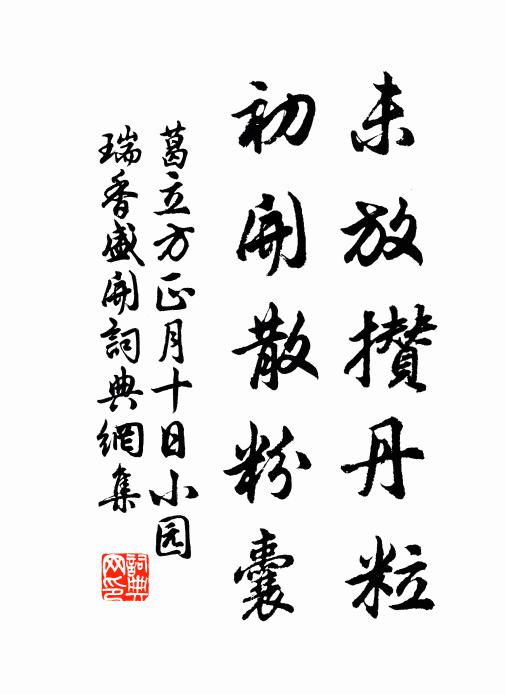 未放攢丹粒
初開散粉囊
葛立方正月十日小园
瑞香盛開詞典網集
詞典
网印